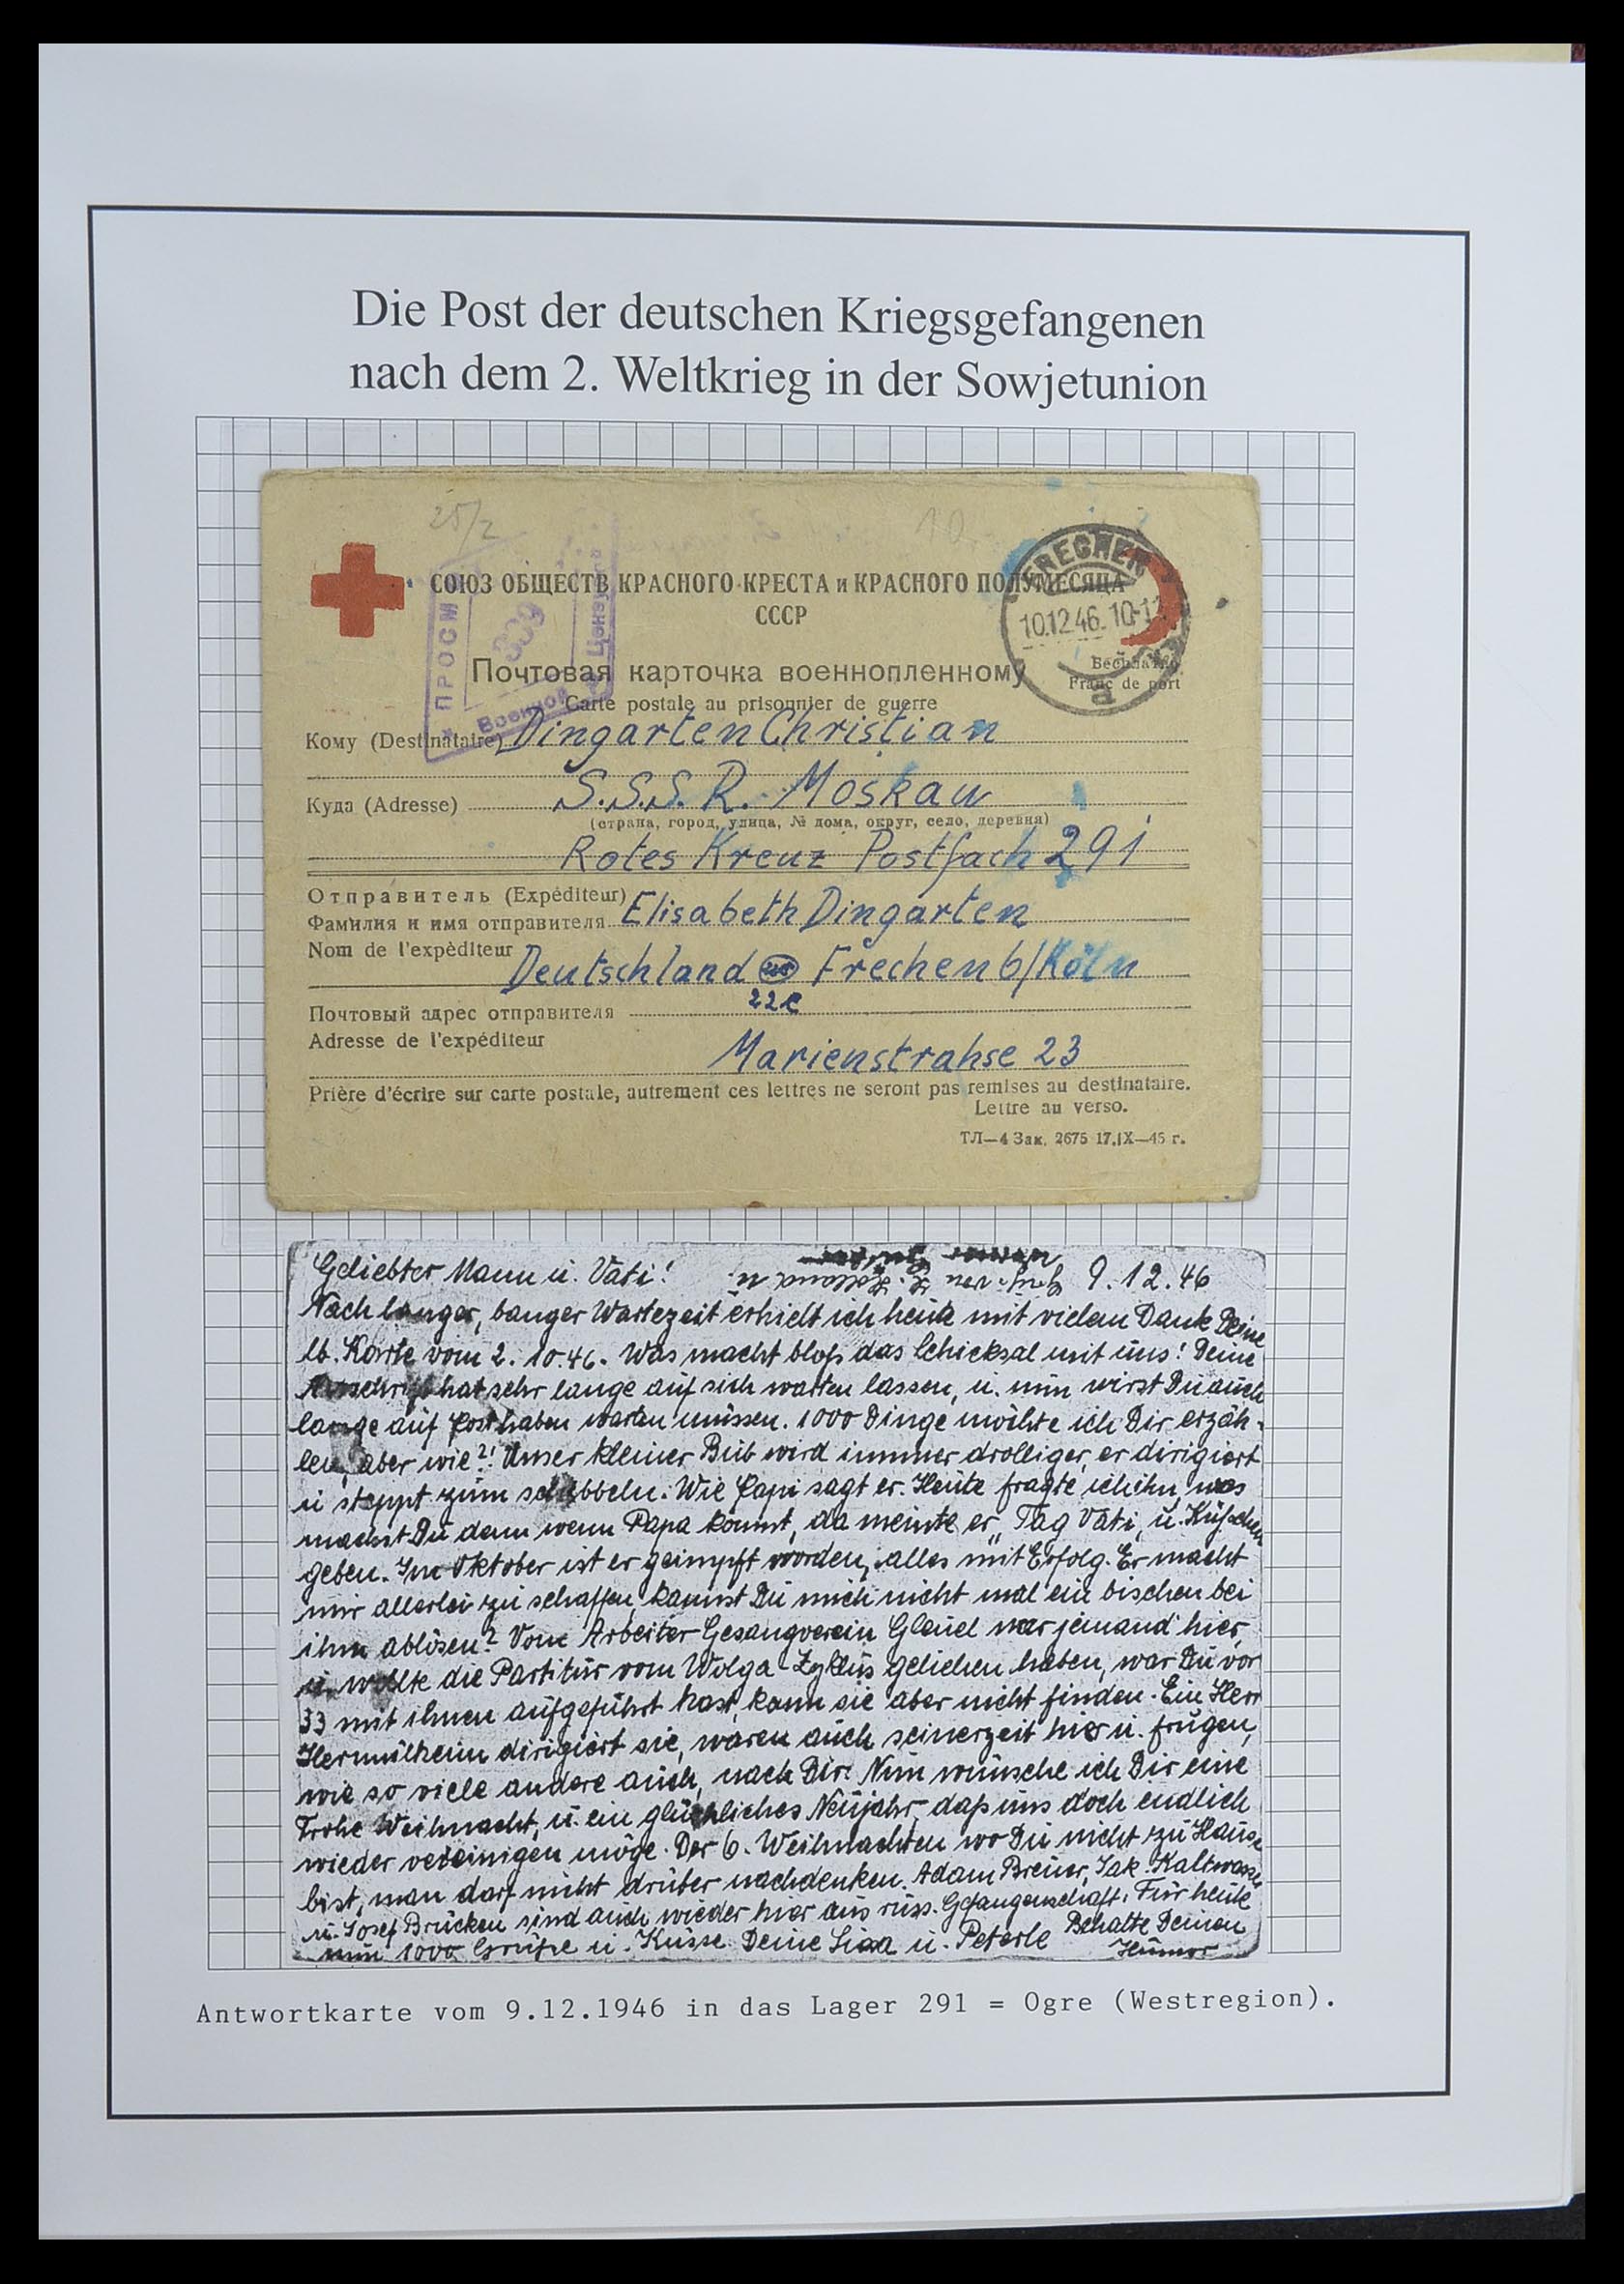 Die Post der deutschen Kriegsgefangenen
nach dem 2. Weltkrieg in der Sowjetunion
25/2
10
СОЮЗ ОБЩЕСТВ КРАСНОГО КРЕСТА и КРАСНОГО ПОЛУМЕСЯЦА
СССР
FRECHEN
10.12.46. 10-1
a
ПРОСМ
339
Военной Цензурой
Почтовая карточка военнопленному
Бесплатно
Carte postale au prisonnier de guerre
Franc de port
Кому (Destinataire) Dingarten Christian
Куда (Adresse) S.S.S.R. Moskau
(страна, город, улица, № дома, округ, село, деревня)
Rotes Kreuz Postfach 291
Отправитель (Expéditeur)
Фамилия и имя отправителя Elisabeth Dingarten
Nom de l'expèditeur
Deutschland Frechen b/Köln
22c
Почтовый адрес отправителя
Adresse de l'expéditeur
Marienstrahse 23
Prière d'écrire sur carte postale, autrement ces lettres ne seront pas remises au destinataire.
Lettre au verso.
ТЛ—4 Зак. 2675 17.IX—45 г.
Geliebter Mann u. Vati! 9.12.46
Nach langer, banger Wartezeit erhielt ich heute mit vielem Dank Deine
lb. Karte vom 2.10.46. Was macht bloß das Schicksal mit uns! Deine
hat sehr lange auf sich warten lassen, u. nun wirst Du auch
lange auf Post haben warten müssen. 1000 Dinge möchte ich Dir erzäh-
len, aber wie?! Unser kleiner Bub wird immer drolliger, er dirigiert
u steppt zum. Wie Papi sagt er. Heute fragte ich ihn was
machst Du denn wenn Papa kommt, da meinte er „Tag Vati, u. Küßchen
geben. Im Oktober ist er geimpft worden, alles mit Erfolg. Er macht
mir allerlei zu schaffen, kannst Du mich nicht mal ein bischen bei
ihm ablösen? Vom Arbeiter-Gesangverein Gleuel war jemand hier,
u. wollte die Partitur vom Wolga-Zyklus geliehen haben, war Du vor
33 mit ihnen aufgeführt hast, kann sie aber nicht finden. Ein Herr
Hermülheim dirigiert sie, waren auch seinerzeit hier u. frugen,
wie so viele andere auch, nach Dir. Nun wünsche ich Dir eine
Frohe Weihnacht, u. ein glückliches Neujahr, daß uns doch endlich
wieder vereinigen möge. Der 6. Weihnachten wo Du nicht zu Hause
bist, man darf nicht drüber nachdenken. Adam Breuer, Jak. Kaltwasser
u. Josef Brücken sind auch wieder hier aus russ. Gefangenschaft. Für heute
nun 1000 Grüße u. Küsse Deine u. Peterle Behalte Deinen
Humor
Antwortkarte vom 9.12.1946 in das Lager 291 = Ogre (Westregion).